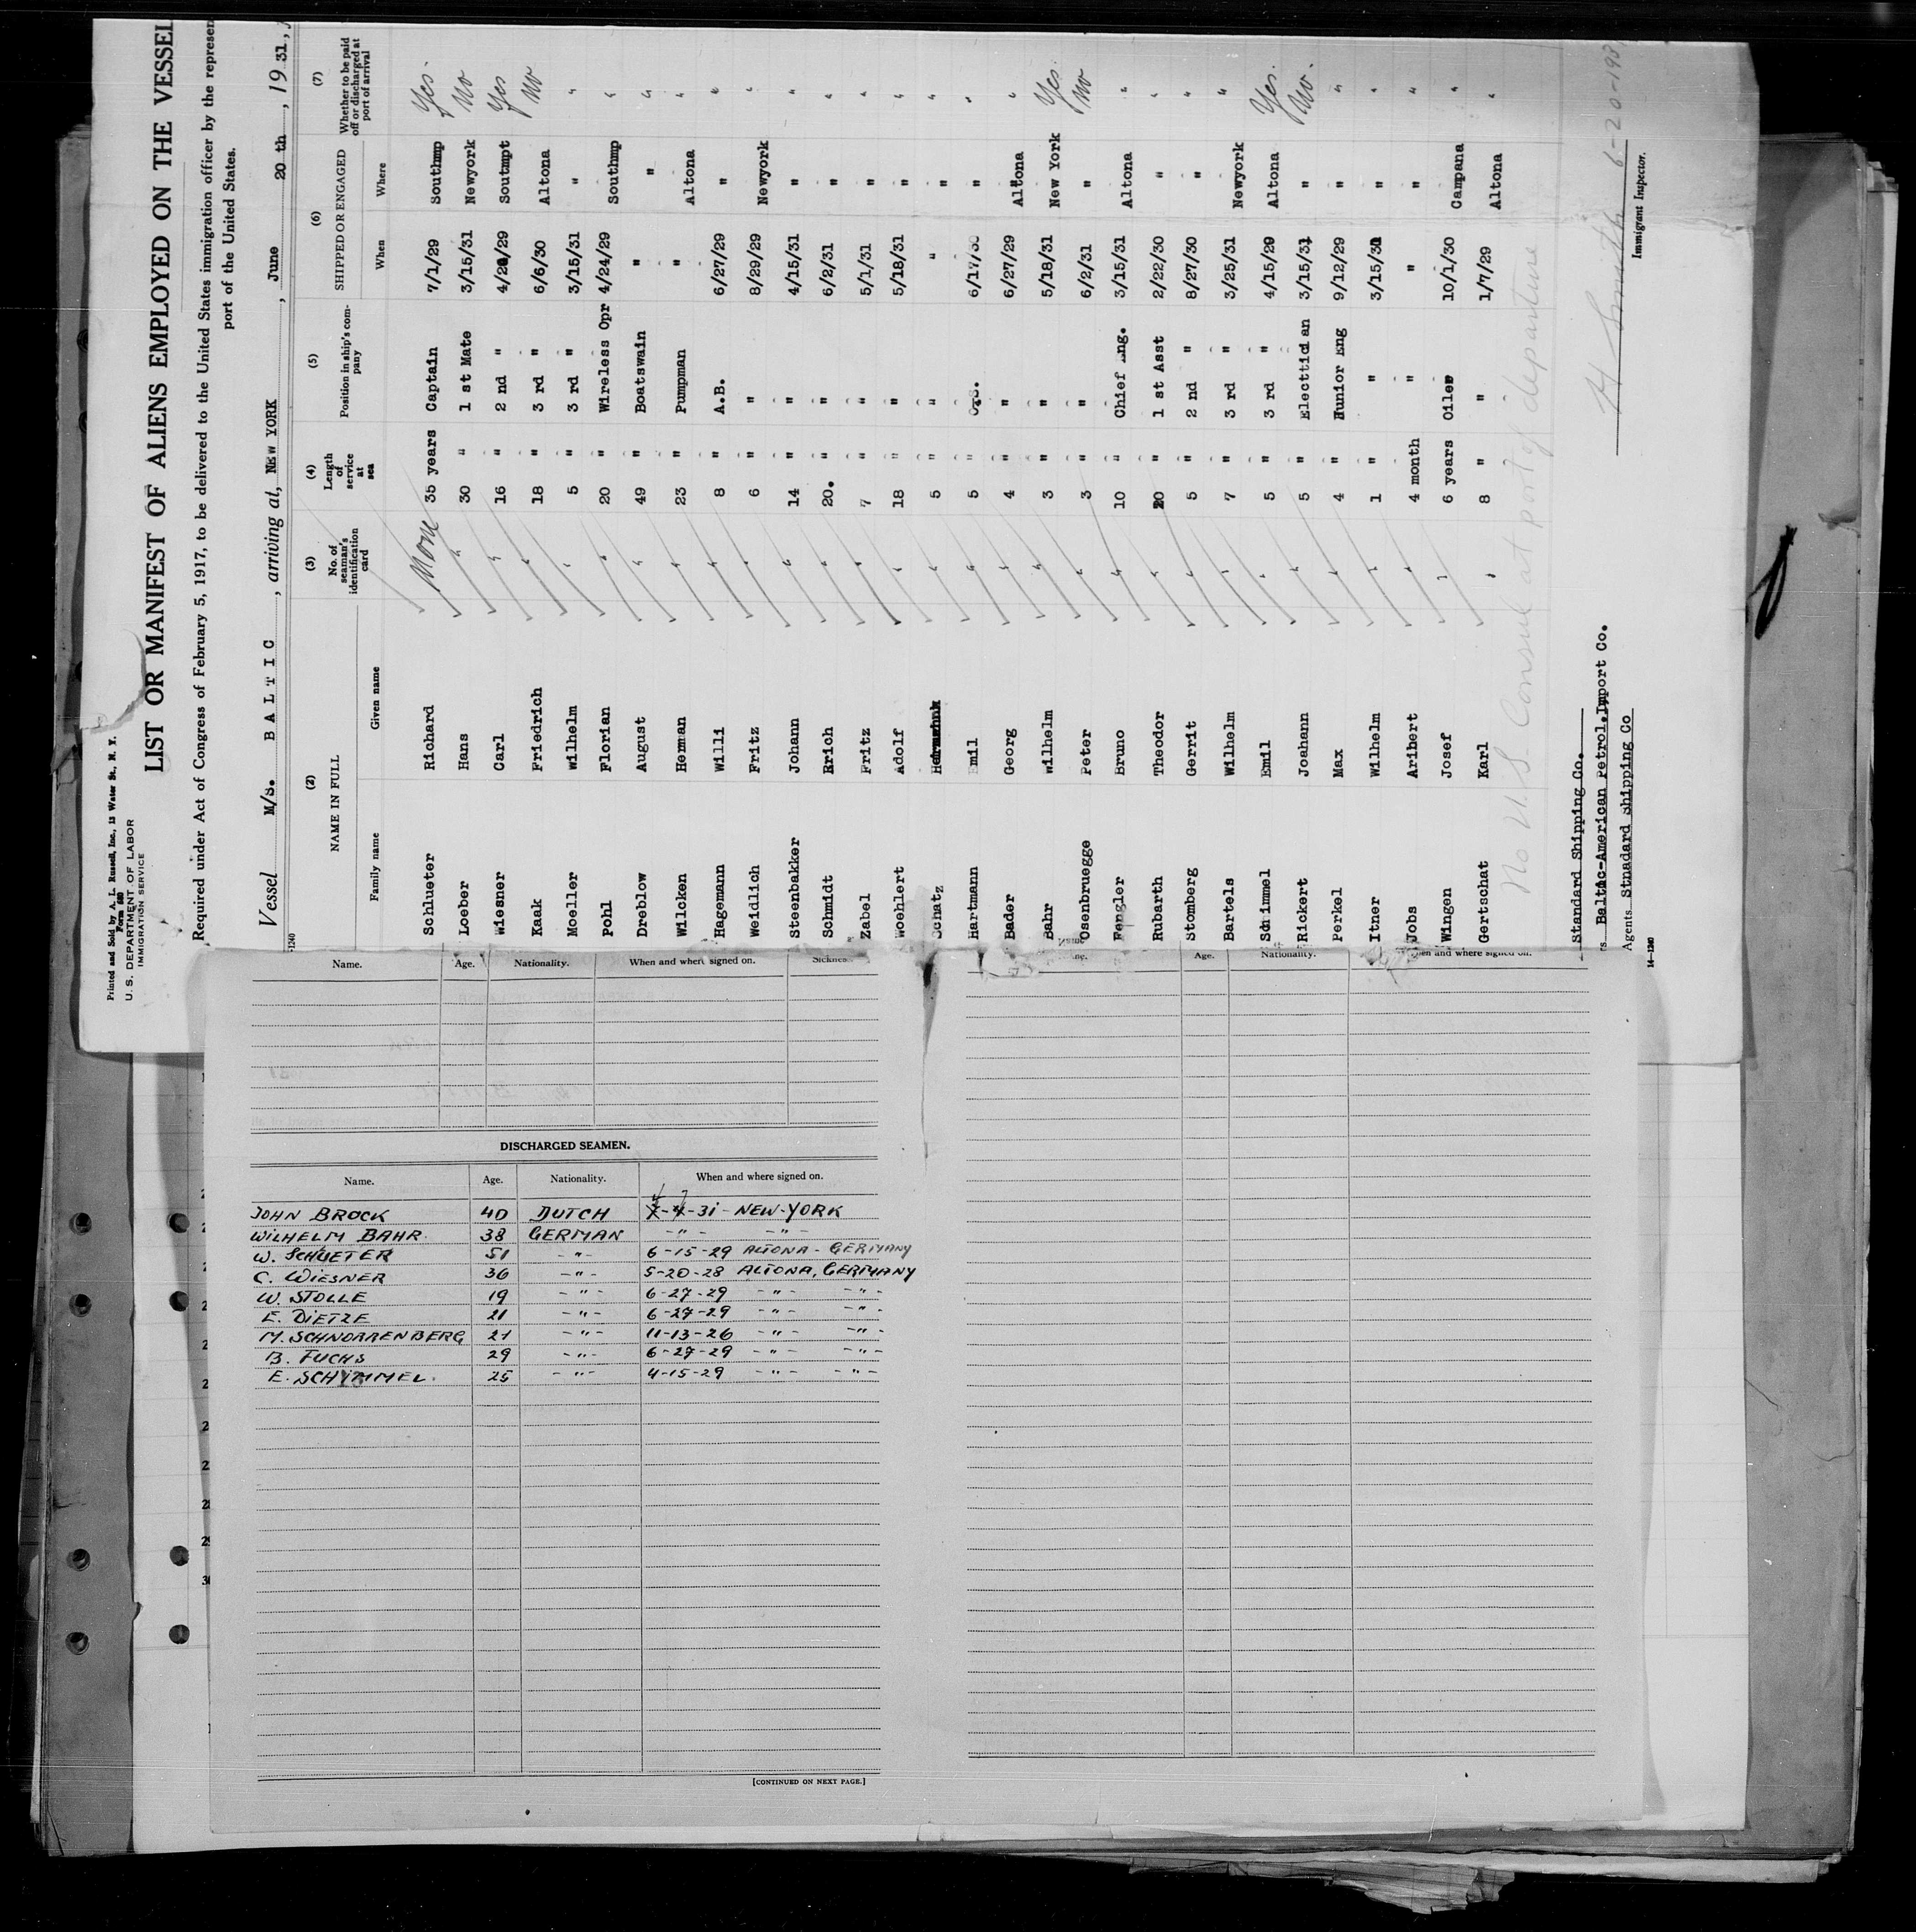 Printed and Sold by A. L. Russell, Inc., 13 Water St., N. Y.
Form 680
U. S. DEPARTMENT OF LABOR
IMMIGRATION SERVICE
LIST OR MANIFEST OF ALIENS EMPLOYED ON THE VESSEL
Required under Act of Congress of February 5, 1917, to be delivered to the United States immigration officer by the represen
port of the United States.
Vessel M/s. BALTIC, arriving at, NEW YORK, June 20 th, 1931,
(2) (3) (4) (5) (6) (7)
NAME IN FULL No. of seaman's identification card Length of service at sea Position in ship's company SHIPPED OR ENGAGED Whether to be paid off or discharged at port of arrival
Family name Given name When Where
Schlueter Richard None 35 years Captain 7/1/29 Southmp Yes.
Loeber Hans " 30 " 1 st Mate 3/15/31 Newyork No
Wiesner Carl " 16 " 2 nd " 4/20/29 Soutmpt Yes
Kaak Friedrich " 18 " 3 rd " 6/6/30 Altona No
Moeller Wilhelm " 5 " 3 rd " 3/15/31 " "
Pohl Florian " 20 " Wireless Opr 4/24/29 Southmp "
Dreblow August " 49 " Boatswain " " "
Wilcken Herman " 23 " Pumpman " Altona "
Hagemann Willi " 8 " A.B. 6/27/29 " "
Weidlich Fritz " 6 " " 8/29/29 Newyork "
Steenbakker Johann " 14 " " 4/15/31 " "
Schmidt Erich " 20. " " 6/2/31 " "
Zabel Fritz " 7 " " 5/1/31 " "
Woehlert Adolf " 18 " " 5/18/31 " "
Schatz " 5 " " " " "
Hartmann Emil " 5 " O.S. 6/17/30 " "
Bader Georg " 4 " " 6/27/29 Altona "
Bahr Wilhelm " 3 " " 5/18/31 New York Yes.
Osenbruegge Peter " 3 " " 6/2/31 " No
Fengler Bruno " 10 " Chief Eng. 3/15/31 Altona "
Rubarth Theodor " 20 " 1 st Asst 2/22/30 " "
Stomberg Gerrit " 5 " 2 nd " 8/27/30 " "
Bartels Wilhelm " 7 " 3 rd " 3/25/31 Newyork "
Schimmel Emil " 5 " 3 rd " 4/15/29 Altona Yes.
Rickert Joahann " 5 " Electtician 3/15/31 " No.
Perkel Max " 4 " Junior Eng 9/12/29 " "
Itner Wilhelm " 1 " " 3/15/31 " "
Jobs Aribert " 4 month " " " "
Wingen Josef " 6 years Oiler 10/1/30 Campana "
Gertschat Karl " 8 " " 1/7/29 Altona "
No U.S Consul at port of departure
Standard Shipping Co.
Baltic-American Petrol.Import Co.
Agents Stnadard Shipping Co
14-1240
H Smith 6-20-1931
Immigrant Inspector.
Name. Age. Nationality. When and where signed on. Sickness.
Age. Nationality. When and where signed on.
DISCHARGED SEAMEN.
Name. Age. Nationality. When and where signed on.
JOHN BROCK 40 DUTCH 4-7-31 - NEW-YORK
WILHELM BAHR. 38 GERMAN -"- -"-
W. SCHUETER 51 -"- 6-15-29 ALTONA - GERMANY
C. WIESNER 36 -"- 5-20-28 ALTONA, GERMANY
W. STOLLE 19 -"- 6-27-29 -"- -"-
E. DIETZE 21 -"- 6-27-29 -"- -"-
M. SCHNORRENBERG 21 -"- 11-13-26 -"- -"-
B. FUCHS 29 -"- 6-27-29 -"- -"-
E. SCHIMMEL. 25 -"- 4-15-29 -"- -"-
[CONTINUED ON NEXT PAGE.]